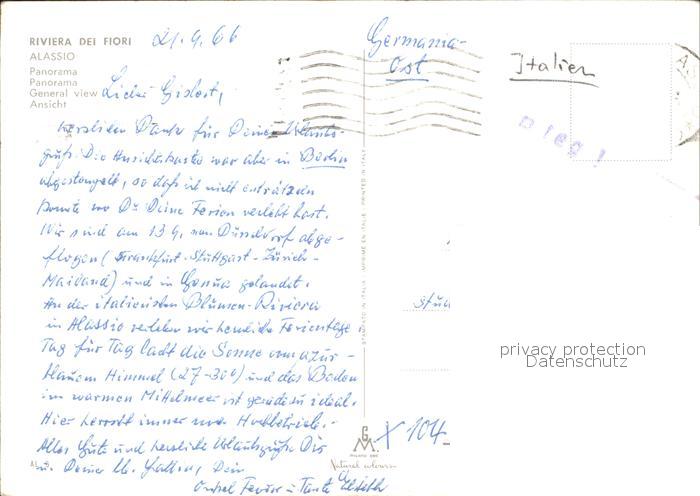 RIVIERA DEI FIORI
ALASSIO
Panorama
Panorama
General view
Ansicht
21.9.66
Germania-
Ost
Italien
Lieber Gisbert,
herzlichen Dank für Deinen Urlaubs-
gruß. Die Ansichtskarte war aber in Berlin
abgestempelt, so daß ich nicht enträtzeln
konnte wo Du Deine Ferien verlebt hast.
Wir sind am 13.9. von Düsseldorf abge-
flogen (Frankfurt-Stuttgart-Zürich-
Mailand) und in Genua gelandet.
An der italienischen Blumen-Riviera
in Alassio verleben wir herrliche Ferientage
Tag für Tag lacht die Sonne am azur-
blauem Himmel (27-30°) und das Baden
im warmen Mittelmeer ist geradezu ideal.
Hier herrscht immer noch Hochbetrieb.-
Alles Gute und herzliche Urlaubsgrüße Dir
u. Deiner lb. Gattin, Dein
Onkel u. Tante
STAMPATO IN ITALIA IMPRIMÉ EN ITALIE PRINTED IN ITALY
X 104
MILANO
Natural colours
privacy protection
Datenschutz